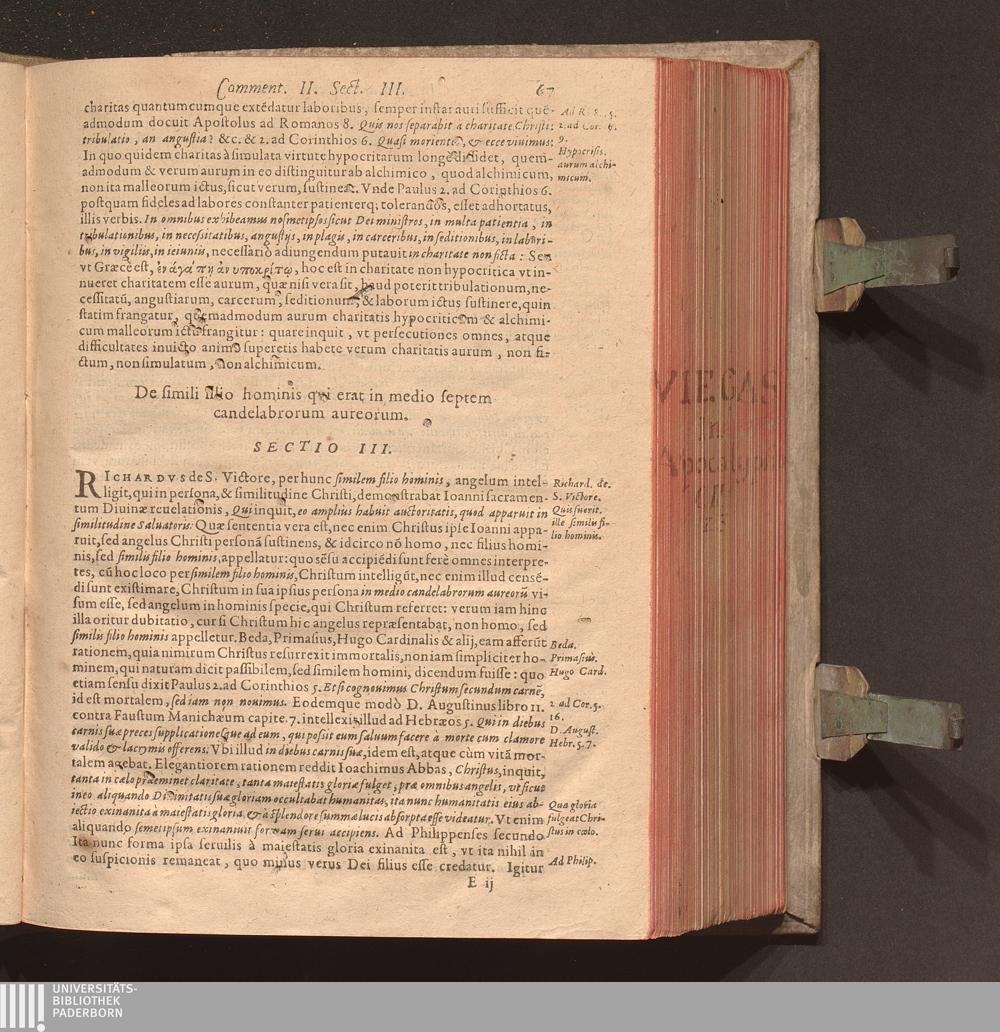 Comment. II. Sect. III. 67
charitas quantumcumque extẽdatur laboribus, semper instar auri sufficit quẽ-
admodum docuit Apostolus ad Romanos 8. Quis nos separabit à charitate Christi:
tribulatio, an angustia? &c. & 2. ad Corinthios 6. Quasi morientes, & ecce viuimus:
In quo quidem charitas à simulata virtute hypocritarum longè dissidet, quem-
admodum & verum aurum in eo distinguitur ab alchimico, quod alchimicum,
non ita malleorum ictus, sicut verum, sustineat. Vnde Paulus 2. ad Corinthios 6.
postquam fideles ad labores constanter patienterq; tolerandos, esset adhortatus,
illis verbis. In omnibus exhibeamus nosmetipsos sicut Dei ministros, in multa patientia, in
tribulationibus, in necessitatibus, angustijs, in plagis, in carceribus, in seditionibus, in labori-
bus, in vigiliis, in ieiuniis, necessariò adiungendum putauit in charitate non ficta: Seu
vt Græcè est, ἐν ἀγάπῃ ἀνυποκρίτῳ, hoc est in charitate non hypocritica vt in-
nueret charitatem esse aurum, quæ nisi vera sit, haud poterit tribulationum, ne-
cessitatũ, angustiarum, carcerum, seditionum, & laborum ictus sustinere, quin
statim frangatur, quemadmodum aurum charitatis hypocriticum & alchimi-
cum malleorum ictu frangitur: quare inquit, vt persecutiones omnes, atque
difficultates inuicto animo superetis habete verum charitatis aurum, non fi-
ctum, non simulatum, non alchimicum.
Ad Ro. 8. 5.
2. ad Cor. 6.
9.
Hypocrisis.
aurum alchi-
micum.
De simili filio hominis qui erat in medio septem
candelabrorum aureorum.
SECTIO III.
RICHARDVS de S. Victore, per hunc similem filio hominis, angelum intel-
ligit, qui in persona, & similitudine Christi, demonstrabat Ioanni sacramen-
tum Diuinæ reuelationis, Qui inquit, eo amplius habuit auctoritatis, quod apparuit in
similitudine Saluatoris: Quæ sententia vera est, nec enim Christus ipse Ioanni appa-
ruit, sed angelus Christi personã sustinens, & idcirco nõ homo, nec filius homi-
nis, sed similis filio hominis, appellatur: quo sẽsu accipiẽdi sunt ferè omnes interpre-
tes, cũ hoc loco per similem filio hominis, Christum intelligũt, nec enim illud censẽ-
di sunt existimare, Christum in sua ipsius persona in medio candelabrorum aureorũ vi-
sum esse, sed angelum in hominis specie, qui Christum referret: verum iam hinc
illa oritur dubitatio, cur si Christum hic angelus repræsentabat, non homo, sed
similis filio hominis appelletur. Beda, Primasius, Hugo Cardinalis & alij, eam afferũt
rationem, quia nimirum Christus resurrexit immortalis, non iam simpliciter ho-
minem, qui naturam dicit passibilem, sed similem homini, dicendum fuisse: quo
etiam sensu dixit Paulus 2. ad Corinthios 5. Et si cognouimus Christum secundum carnẽ,
id est mortalem, sed iam non nouimus. Eodemque modò D. Augustinus libro 11.
contra Faustum Manichæum capite. 7. intellexit illud ad Hebræos 5. Qui in diebus
carnis suæ preces supplicationesque ad eum, qui possit eum saluum facere à morte cum clamore
valido & lacrymis offerens. Vbi illud in diebus carnis suæ, idem est, atque cùm vitã mor-
talem agebat. Elegantiorem rationem reddit Ioachimus Abbas, Christus, inquit,
tanta in cælo præeminet claritate, tanta maiestatis gloria fulget, præ omnibus angelis, vt sicut
in eo aliquando Diuinitatis suæ gloriam occultabat humanitas, ita nunc humanitatis eius ab-
iectio exinanita à maiestatis gloria & à splendore summæ lucis absorpta esse videatur. Vt enim
aliquando semetipsum exinaniuit formam serui accipiens. Ad Philippenses secundo
Ita nunc forma ipsa seruilis à maiestatis gloria exinanita est, vt ita nihil in
eo suspicionis remaneat, quo minus verus Dei filius esse credatur. Igitur
E ij
Richard. de.
S. Victore.
Quis fuerit.
ille similis fi-
lio hominis.
Beda.
Primasius.
Hugo Card.
2 ad Cor. 5.
16.
D. August.
Hebr. 5. 7.
Qua gloria
fulgeat Chri-
stus in cœlo.
Ad Philip.
VIEGAS
In
UNIVERSITÄTS-
BIBLIOTHEK
PADERBORN